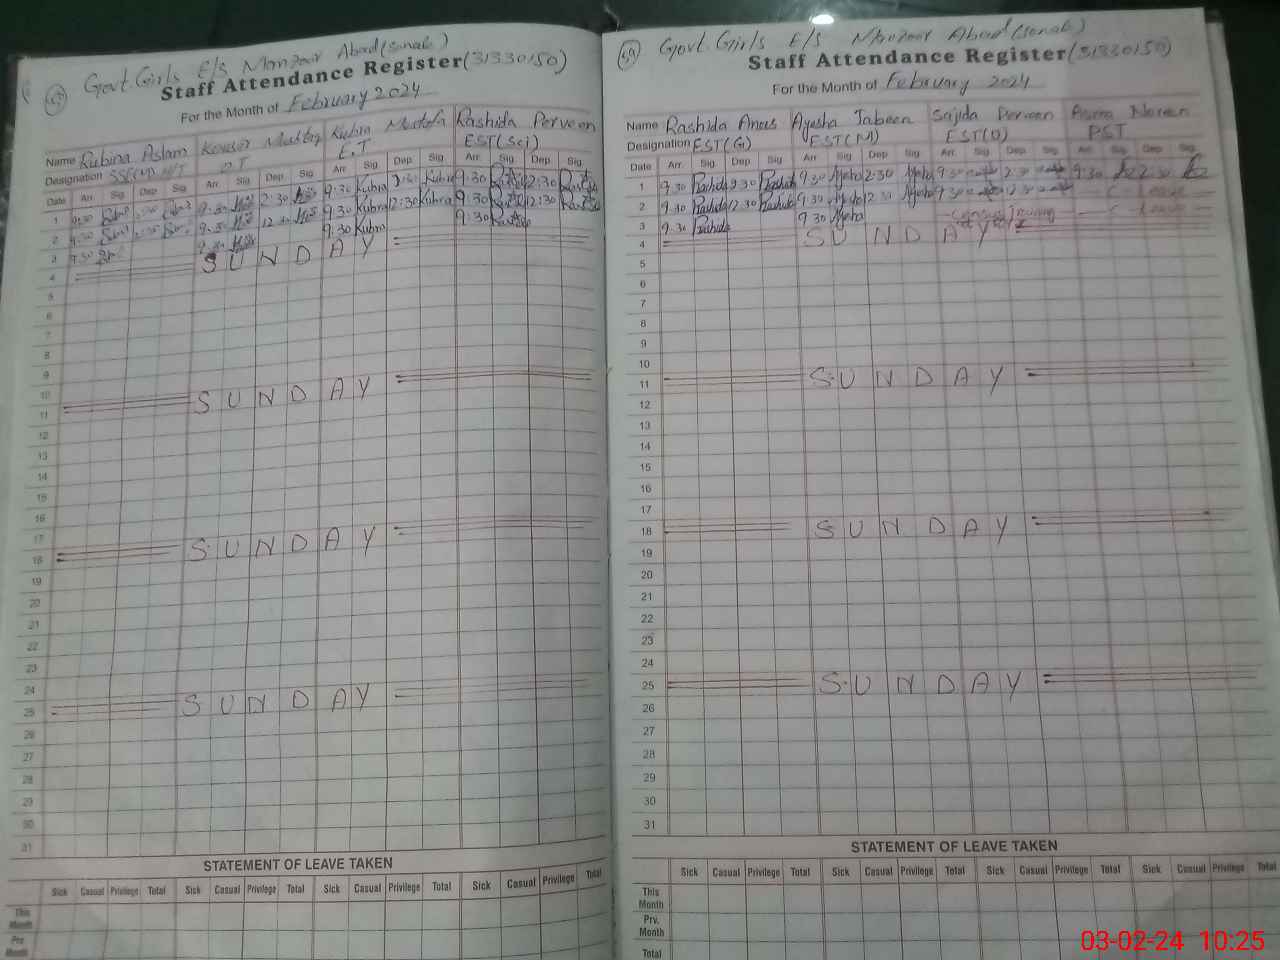 Govt. Girls E/S Manzoor Abad (Sanak)
Staff Attendance Register (31330150)
For the Month of February 2024
Name Rubina Aslam Kousar Mushtaq Kubra Mustafa Rashida Perveen
Designation E.T EST(Sci)
Date Arr. Sig Dep Sig Arr Sig Dep Sig Arr Sig Dep Sig Arr. Sig Dep Sig.
1 9:30 9:30 2:30 9:30 Kubra 2:30 Kubra 9:30 2:30
2 9:30 9:30 12:30 9:30 Kubra 12:30 Kubra 9:30 12:30
3 9:30 9:30 9:30 Kubra 9:30
4 SUNDAY
5
6
7
8
9
10
11 SUNDAY
12
13
14
15
16
17
18 SUNDAY
19
20
21
22
23
24
25 SUNDAY
26
27
28
29
30
31
STATEMENT OF LEAVE TAKEN
Sick Casual Privilege Total Sick Casual Privilege Total Sick Casual Privilege Total Sick Casual Privilege Total
This Month
Prv. Month
59 Govt. Girls E/S Manzoor Abad (Sanak)
Staff Attendance Register (31330150)
For the Month of February 2024
Name Rashida Anees Ayesha Jabeen Sajida Perveen Asma Noreen
Designation EST(G) EST(M) EST(D) PST
Date Arr. Sig Dep Sig Arr Sig Dep Sig Arr Sig Dep Sig Arr Sig Dep Sig.
1 9:30 Rashida 2:30 Rashida 9:30 Ayesha 2:30 Ayesha 9:30 2:30 9:30 2:30
2 9:30 Rashida 12:30 Rashida 9:30 Ayesha 12:30 Ayesha 9:30 12:30 C Leave
3 9:30 Rashida 9:30 Ayesha C Leave
4 SUNDAY
5
6
7
8
9
10
11 SUNDAY
12
13
14
15
16
17
18 SUNDAY
19
20
21
22
23
24
25 SUNDAY
26
27
28
29
30
31
STATEMENT OF LEAVE TAKEN
Sick Casual Privilege Total Sick Casual Privilege Total Sick Casual Privilege Total Sick Casual Privilege Total
This Month
Prv. Month
Total
03-02-24 10:25